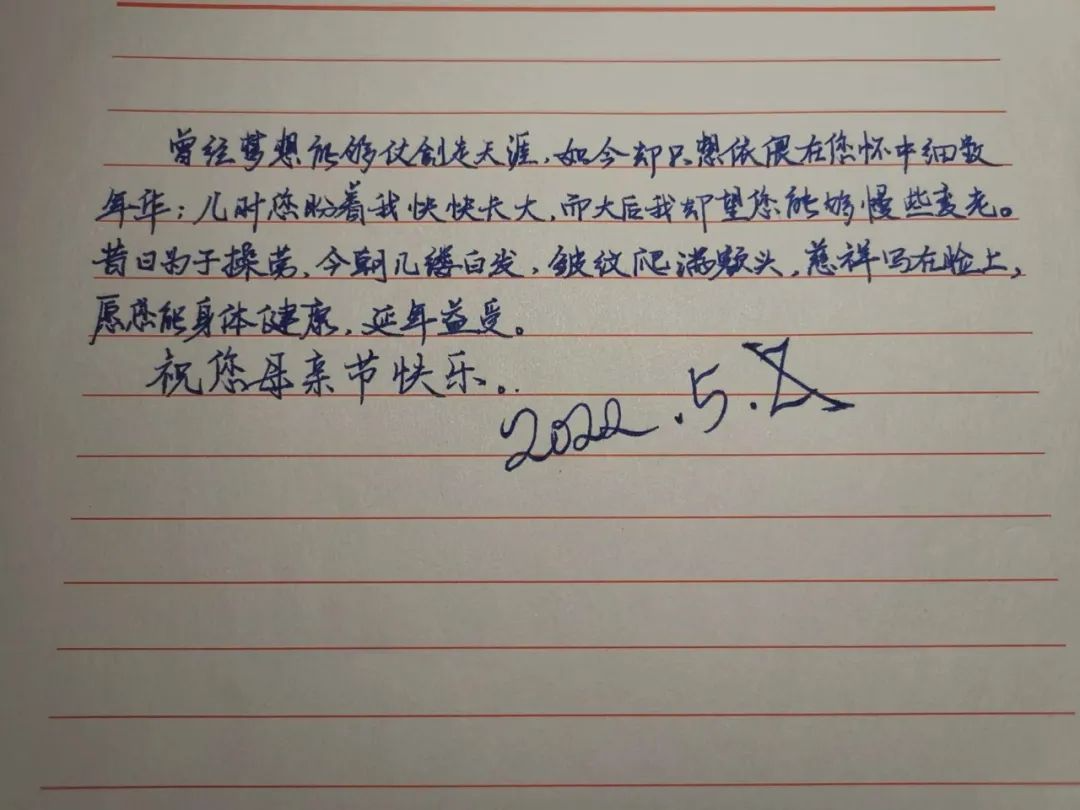 曾经梦想能够仗剑走天涯，如今却只想依偎在您怀中细数
年华；儿时您盼着我快快长大，而大后我却望您能够慢些变老。
昔日为子操劳，今朝几缕白发，皱纹爬满额头，慈祥写在脸上，
愿您能身体健康，延年益受。
祝您母亲节快乐。
2022.5.8